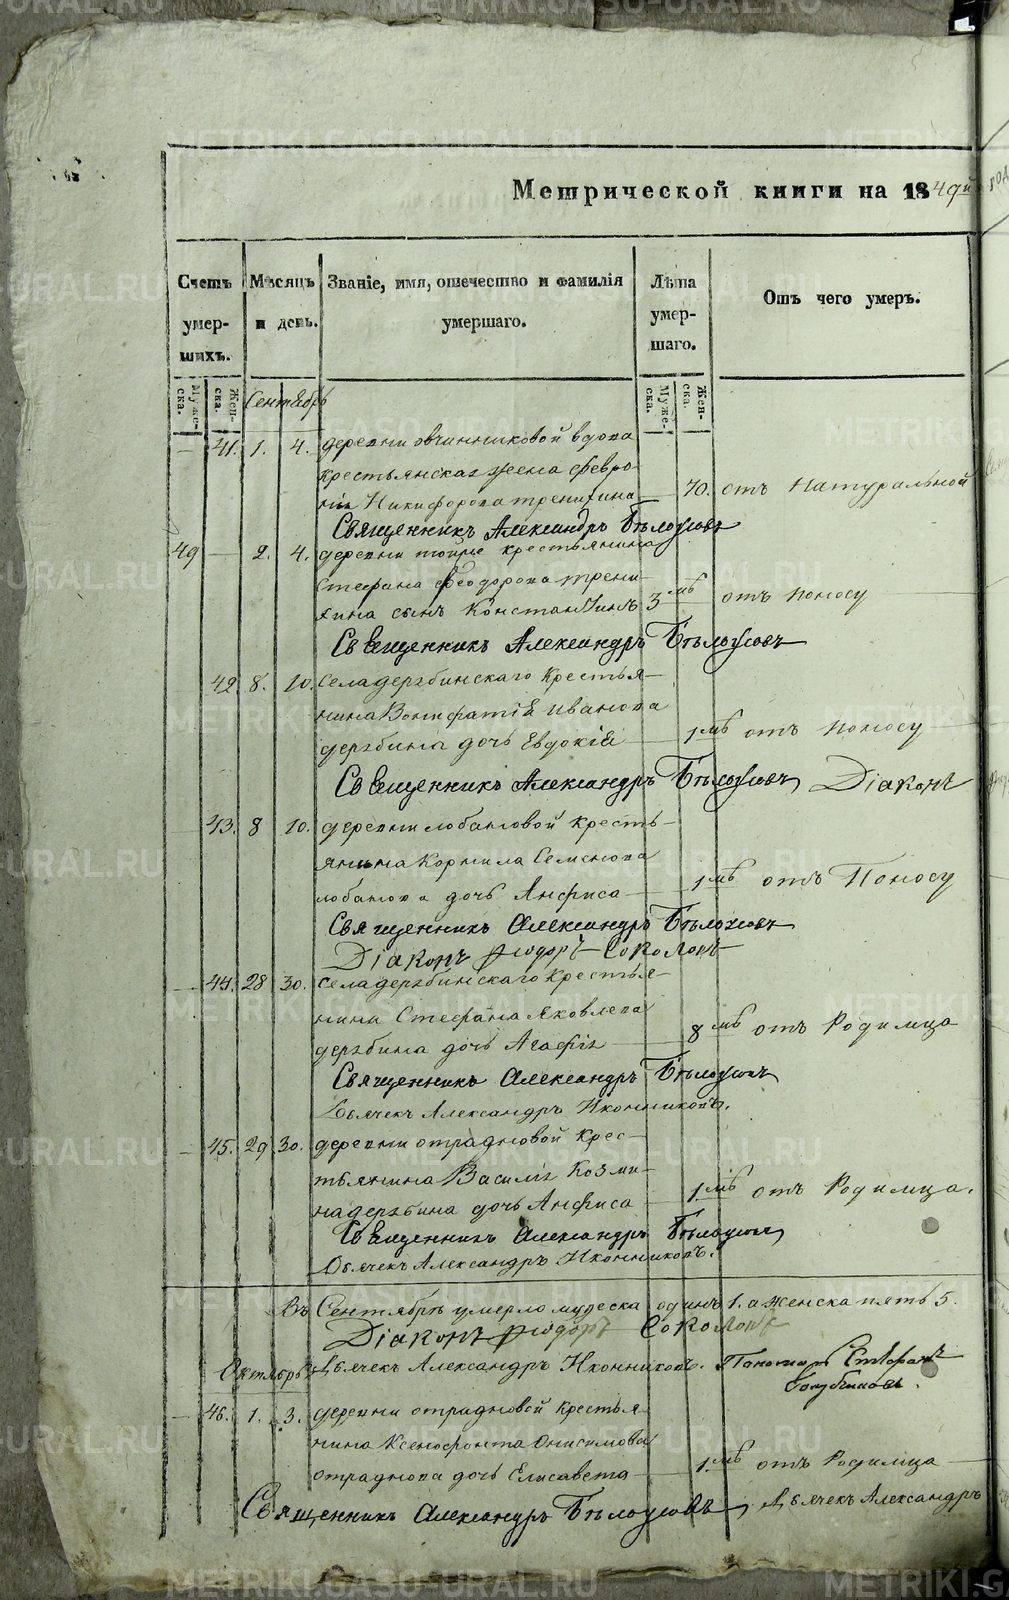 Метрической книги на 1849й год
Счетъ умер-шихъ.
Мѣсяцъ и день.
Званіе, имя, отечество и фамилія умершаго.
Лѣта умер-шаго.
Отъ чего умеръ.
Муже-ска.
Жен-ска.
Муже-ска.
Жен-ска.
Сентябрь
41. 1. 4. деревни овчинниковой вдова
крестьянская жена Февро-
нія Никифорова тренихина 70. отъ Натуральной
Священникъ Александръ Бѣлоусовъ
49 2. 4. деревни тойже крестьянина
Стефана Феодорова трени-
хина сынъ Константинъ 3 мѣ отъ поносу
Священникъ Александръ Бѣлоусовъ
42. 8. 10. Села дерябинскаго крестья-
нина Вонифатія Иванова
дерябина дочь Евдокія 1 мѣ отъ поносу
Священникъ Александръ Бѣлоусовъ Діаконъ
43. 8 10. деревни лобановой кресть-
янина Корнила Семенова
лобанова дочь Анфиса 1 мѣ отъ Поносу
Священникъ Александръ Бѣлоусовъ
Діаконъ Ѳіодоръ Соколовъ
44. 28 30. Села дерябинскаго крестья-
нина Стефана Яковлева
дерябина дочь Агафія 8 мѣ отъ Родимца
Священникъ Александръ Бѣлоусовъ
Дьячекъ Александръ Иконниковъ.
45. 29 30. деревни отрадновой крес-
тьянина Василія Козми-
на дерябина дочь Анфиса 1. мѣ отъ Родимца.
Священникъ Александръ Бѣлоусовъ
Дьячекъ Александръ Иконниковъ.
Въ Сентябрѣ умерло мужеска одинъ 1. а женска пять 5.
Діаконъ Ѳіодоръ Соколовъ
Дьячекъ Александръ Иконниковъ. Пономарь Стефанъ
Октябрь
46. 1. 3. деревни отрадновой крестья-
нина Ксенофонта Онисимова
отраднова дочь Елисавета 1. мѣ отъ Родимца
Священникъ Александръ Бѣлоусовъ, Дьячекъ Александръ
METRIKI.GASO-URAL.RU